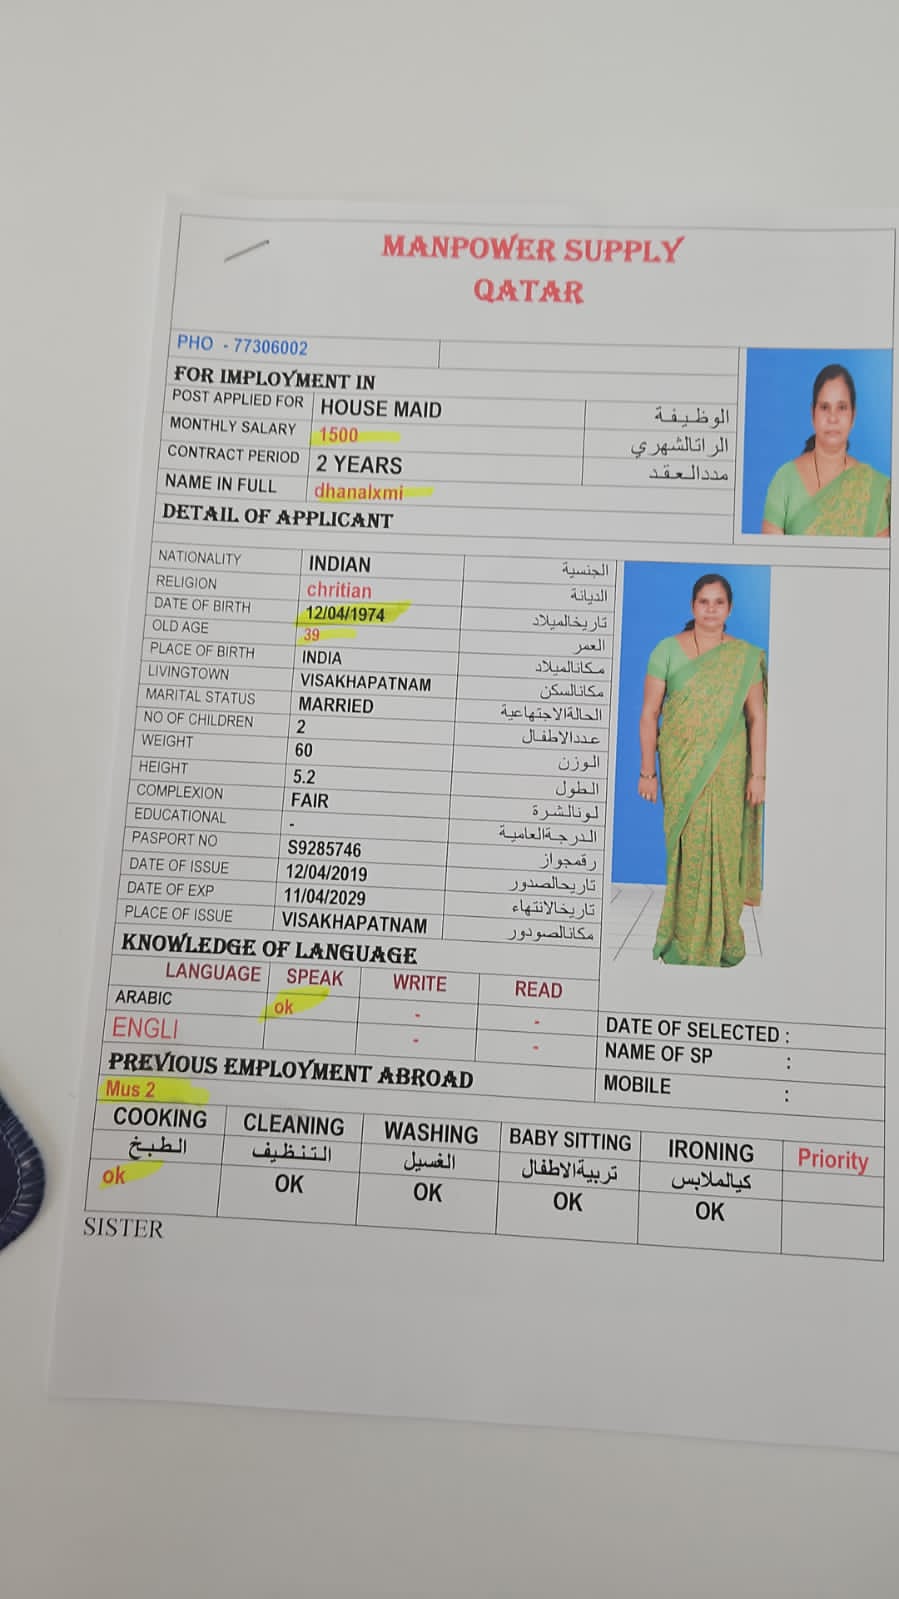 MANPOWER SUPPLY
QATAR
PHO - 77306002
FOR IMPLOYMENT IN
POST APPLIED FOR HOUSE MAID الوظيفة
MONTHLY SALARY 1500 الراتالشهري
CONTRACT PERIOD 2 YEARS مددالعقد
NAME IN FULL dhanalxmi
DETAIL OF APPLICANT
NATIONALITY INDIAN الجنسية
RELIGION chritian الديانة
DATE OF BIRTH 12/04/1974 تاريخالميلاد
OLD AGE 39 العمر
PLACE OF BIRTH INDIA مكانالميلاد
LIVINGTOWN VISAKHAPATNAM مكانالسكن
MARITAL STATUS MARRIED الحالةالاجتهاعية
NO OF CHILDREN 2 عددالاطفال
WEIGHT 60 الوزن
HEIGHT 5.2 الطول
COMPLEXION FAIR لونالشرة
EDUCATIONAL - الدرجةالعامية
PASPORT NO S9285746 رقمجواز
DATE OF ISSUE 12/04/2019 تاريحالصدور
DATE OF EXP 11/04/2029 تاريخالانتهاء
PLACE OF ISSUE VISAKHAPATNAM مكانالصودور
KNOWLEDGE OF LANGUAGE
LANGUAGE SPEAK WRITE READ
ARABIC ok - -
ENGLI - -
DATE OF SELECTED :
NAME OF SP :
MOBILE :
PREVIOUS EMPLOYMENT ABROAD
Mus 2
COOKING CLEANING WASHING BABY SITTING IRONING Priority
الطبخ التنظيف الغسيل تربيةالاطفال كيالملابس
ok OK OK OK OK
SISTER